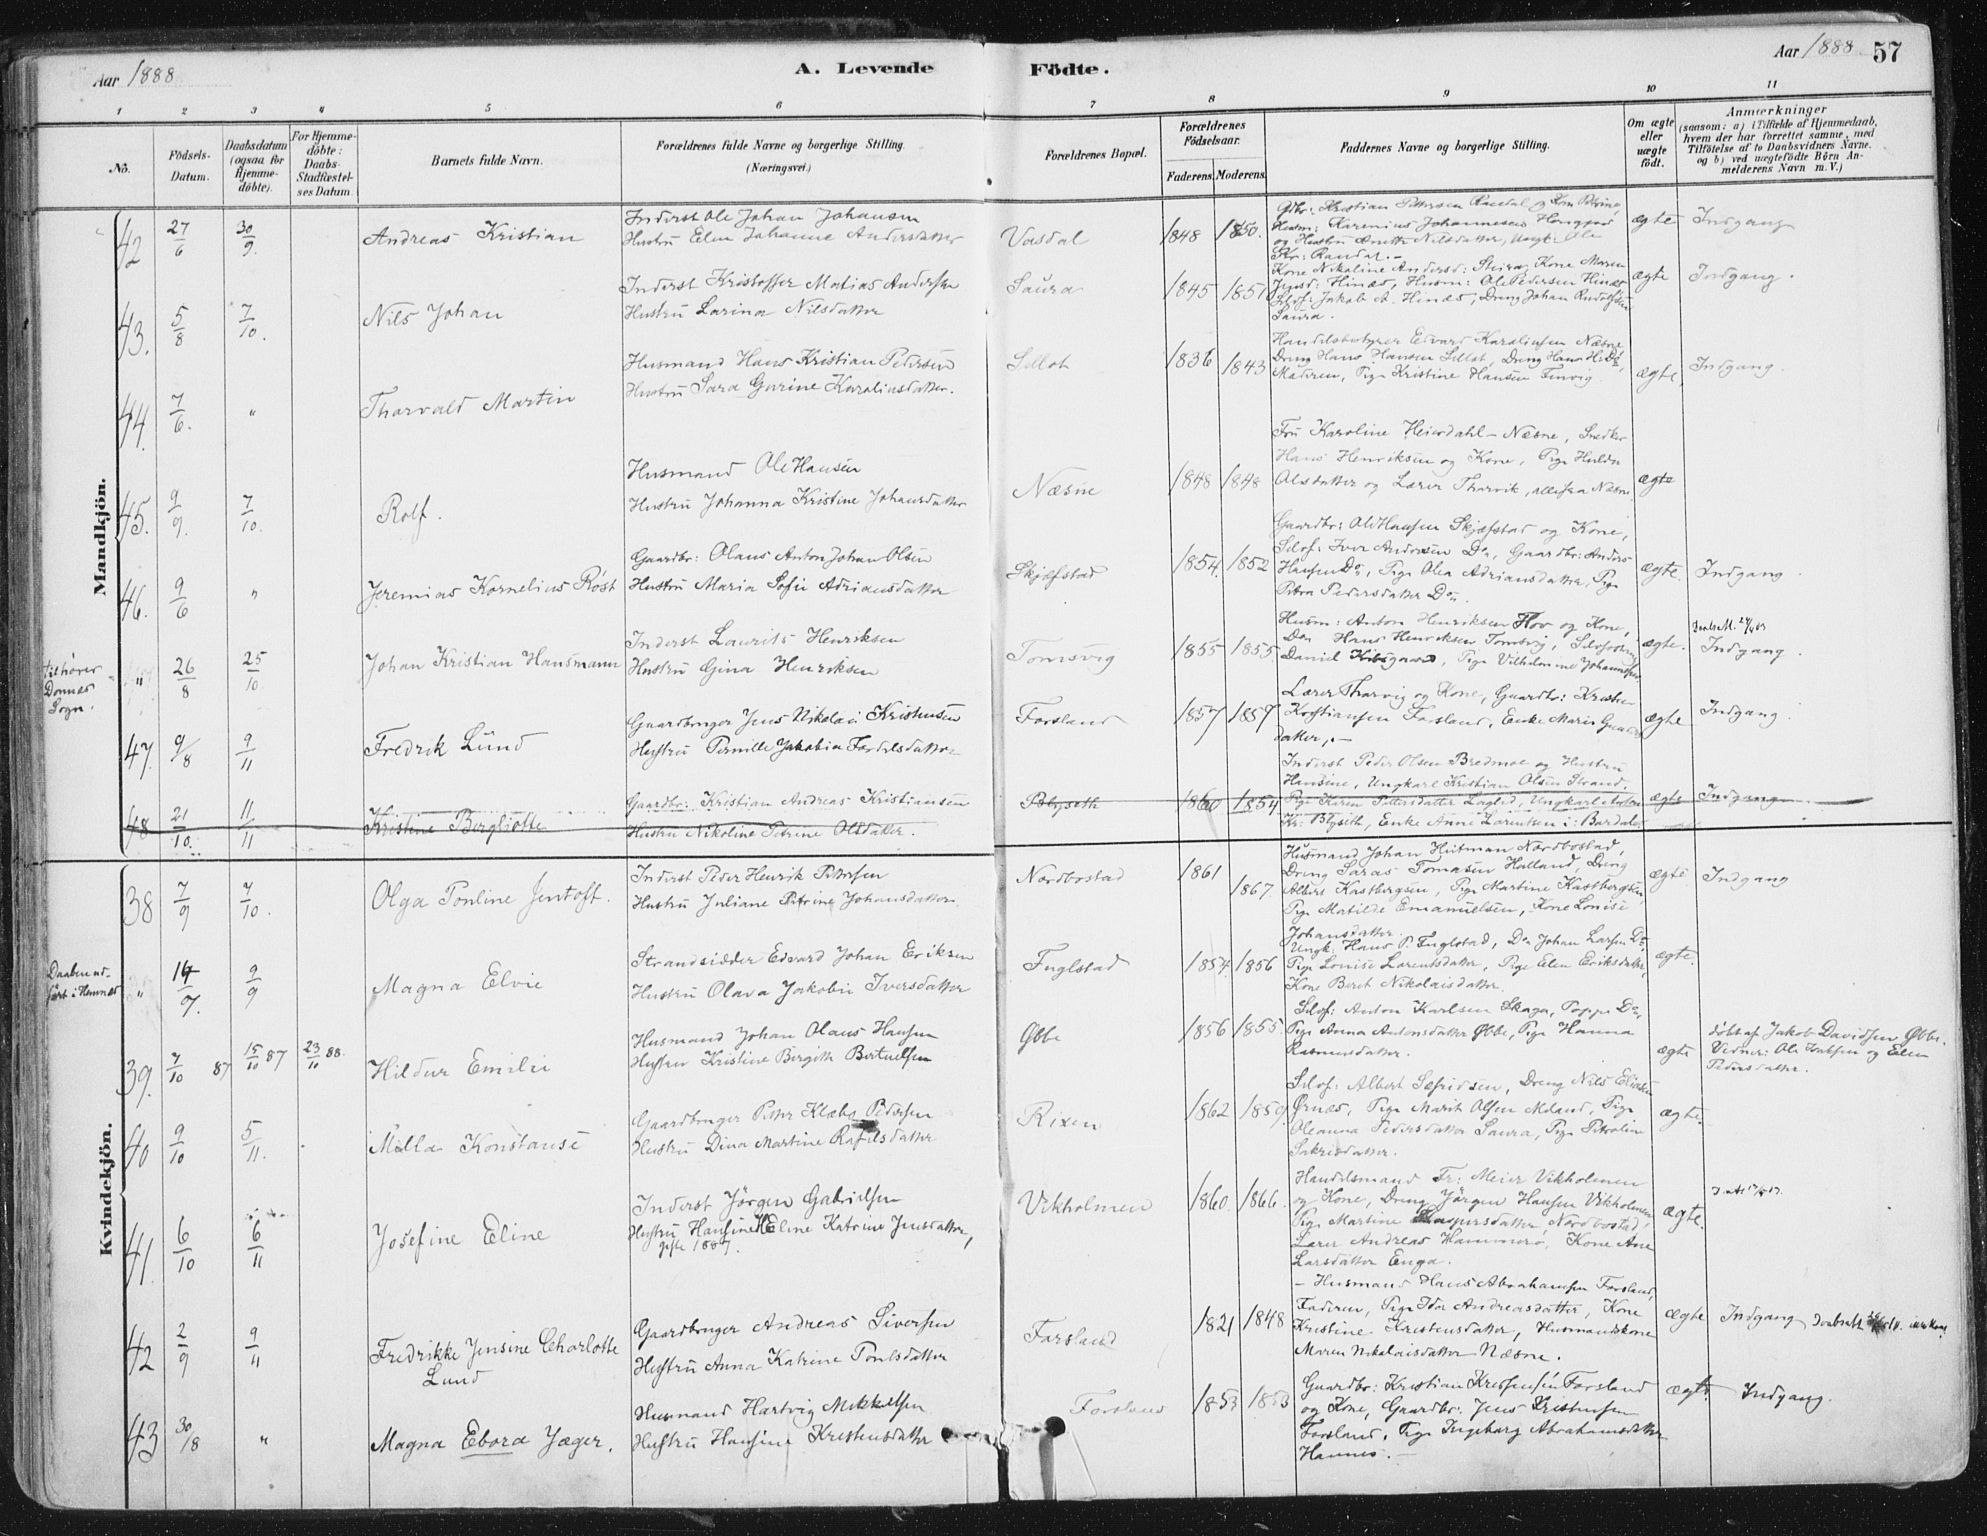 Aar 1888
A. Levende
Födte.
Aar 1888
57
1 2 3 4 5 6 7 8 9 10 11
No.
Födsels-
Datum.
Daabsdatum
(ogsaa for
Hjemme-
döbte).
For Hjemme-
döbte:
Daabs-
Stadfæstel-
ses Datum.
Barnets fulde Navn.
Forældrenes fulde Navne og borgerlige Stilling.
(Næringsvei.)
Forældrenes Bopæl.
Forældrenes
Födselsaar.
Faderens. Moderens.
Faddernes Navne og borgerlige Stilling.
Om ægte
eller
uægte
födt.
Anmærkninger
(saasom: a) i Tilfælde af Hjemmedaab,
hvem der har forrettet samme, med
Tilföielse af to Daabsvidners Navne.
og b) ved uægtefödte Börn An-
melderens Navn m. V.)
Mandkjön.
42 27/6 30/9. Andreas Kristian
Inderst Ole Johan Johansen
Hustru Elen Johanne Andersdatter
Vasdal 1848 1850.
ægte Indgang
43. 5/8 7/10. Nils Johan
Inderst Kristoffer Matias Andersen
Hustru Larina Nilsdatter
Saura 1845 1851
Kone Nikoline Andersd: Kone Maren
Jensd: Hinæs, Husm: Ole Pedersen Hinæs
Selvf: Jakob A. Hinæs, Dreng Johan Rudolfsen
Saura.
ægte Indgang.
44. 7/6. " Thorvald Martin
Husmand Hans Kristian Pedersen
Hustru Sara Gurine Karaliusdatter.
1836 1843
Næsne
Dreng Hans Hansen
Moderen, Pige Kristine Hansen Finvig.
ægte, Indgang.
45. 9/9. 7/10. Rolf.
Husmand Ole Hansen
Hustru Johanna Kristine Johansdatter
Næsne 1848 1848
Fru Karoline Heierdahl - Næsne, Snedker
Hans Henriksen og Kone, Pige Hulda
Olsdatter og Lærer Tharvik, alle fra Næsne.
ægte
46. 9/6 " Jeremias Kornelius Röst
Gaardbr: Olaus Anton Johan Olsen
Hustru Maria Sofie Adriansdatter
Skjæfstad 1854. 1852
Gaardbr: Ole Hansen Skjæfstad og Kone,
Selvf: Iver Andersen Do, Gaardbr: Anders
Hansen Do, Pige Olea Adriansdatter, Pige
Petra Pedersdatter Do.
ægte. Indgang.
tilhører
Dønnes
Sogn.
" 26/8 25/10 Johan Kristian Hansmann
Inderst Laurits Henriksen
Hustru Gina Henriksen
Tomsvig 1855 1855.
Husm: Anton Henriksen Hov og Kone,
Do Hans Henriksen Tomsvig,
Daniel Pige Vilhelmine Johannesen
ægte. Indgang.
47. 9/8 9/11 Fredrik Lund
Gaardbruger Jens Nikolai Kristensen
Hustru Pernille Jakobia Fordelsdatter
Forsland 1857 1859
Lærer Tharvig og Kone, Gaardbr: Kristen
Kristiansen Forsland, Enke Maren
datter. -
ægte Indgang.
48. 21/10. 11/11 Kristine Bergliotte
Gaardbr: Kristian Andreas Kristiansen
Hustru Nikoline Petrine Olsdatter.
Blyseth 1860 1854
Inderst Peder Olsen Bredmoe og Hustru
Hansine, Ungkarl Kristian Olsen Strand.
Pige Karen Pettersdatter Ungkarl Anton
Kr: Blyseth, Enke Anne Larentsen i: Bardalen
ægte Indgang.
Kvindekjön.
38 7/9 7/10. Olga Pouline Jentoft.
Inderst Peder Henrik Pettersen
Hustru Juliane Petrine Johansdatter
Nordbostad 1861 1867.
Husmand Johan Heitman Nordbostad,
Dreng Saras Tomasen Halland, Dreng
Albert Kastbergsen, Pige Martine Kastbergsen
Pige Matilde Emanuelsen, Kone Louise
Johansdatter.
ægte. Indgang
Daaben ud-
ført i Hemnæs
" 14/7. 9/9 Magna Elvie
Strandsidder Edvard Johan Eriksen
Hustru Olava Jakobie Iversdatter
Fuglstad 1854. 1856
Ungk: Hans P. Fuglstad, Do Johan Larsen Do,
Pige Louise Larentsdatter, Pige Elen Eriksdatter,
Kone Beret Nikolaisdatter.
ægte.
39. 7/10 87 15/10 87 23/10 88. Hildur Emilie
Husmand Johan Olaus Hansen
Hustru Kristine Bergitte Bertuelsen
Øbbe 1856 1855.
Selvf: Anton Karlsen Skaga, Do,
Pige Anna Antonsdatter Øbbe, Pige Hanna
Rasmusdatter.
ægte
døbt af Jakob Davidsen Øbbe.
Vidner: Ole og Elen
Pedersdatter.
40 9/10 5/11. Milla Konstanse
Gaardbruger Petter Klæbo Pedersen
Hustru Dina Martine Rafelsdatter
Rixen 1862 1859.
Selvf: Albert Sefridsen, Dreng Nils Eliasen
Ørnæs, Pige Marit Olsen Meland, Pige
Oleanna Pedersdatter Saura, Pige Petroline
Sakrisdatter.
ægte.
41. 6/10 6/11 Josefine Eline
Inderst Jörgen Gabrielsen
Hustru Hansine Eline Katrine Jensdatter,
gifte 1887.
Vikholmen 1860. 1866.
Handelsmand Fr: Meier Vikholmen
og Kone, Dreng Jörgen Hansen Vikholmen
Pige Martine Kaspersdatter Nordbostad,
Lærer Andreas Hammerö, Kone Ane
Larsdatter Enga.
ægte.
42 2/9 9/11 Fredrikke Jensine Charlotte
Lund
Gaardbruger Andreas Siversen
Hustru Anna Katrine Poulsdatter
Forsland 1821 1848
- Husmand Hans Abrahamsen Forsland,
Faderen, Pige Ida Andreasdatter, Kone
Kristine Kristensdatter, Husmandskone
Maren Nikolaisdatter Næsne.
ægte Indgang
43 30/8 " Magna Ebora Jæger.
Husmand Hartvig Mikkelsen
Hustru Hansine Kristensdatter
Forsland 1853 1853
Gaardbr: Kristian Kristensen Forsland
og Kone, Gaardbr: Jens Kristensen
Forsland, Pige Ingeborg Abrahamsdatter
Hannes. -
ægte. Indgang.